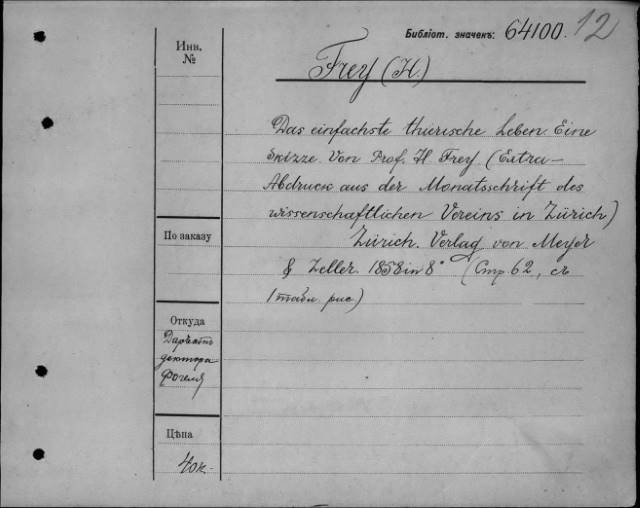 Библіот. значекъ: 64100. 12
Инв.
№
Frey (H.)
Das einfachste thierische Leben Eine
Skizze. Von Prof. H. Frey (Extra-
Abdruck aus der Monatsschrift des
wissenschaftlichen Vereins in Zürich)
По заказу
Zürich. Verlag von Meyer
& Zeller. 1858 in 8° (Стр. 62, съ
1 табл. рис)
Откуда
доктора
Фогеля
Цѣна
40к.